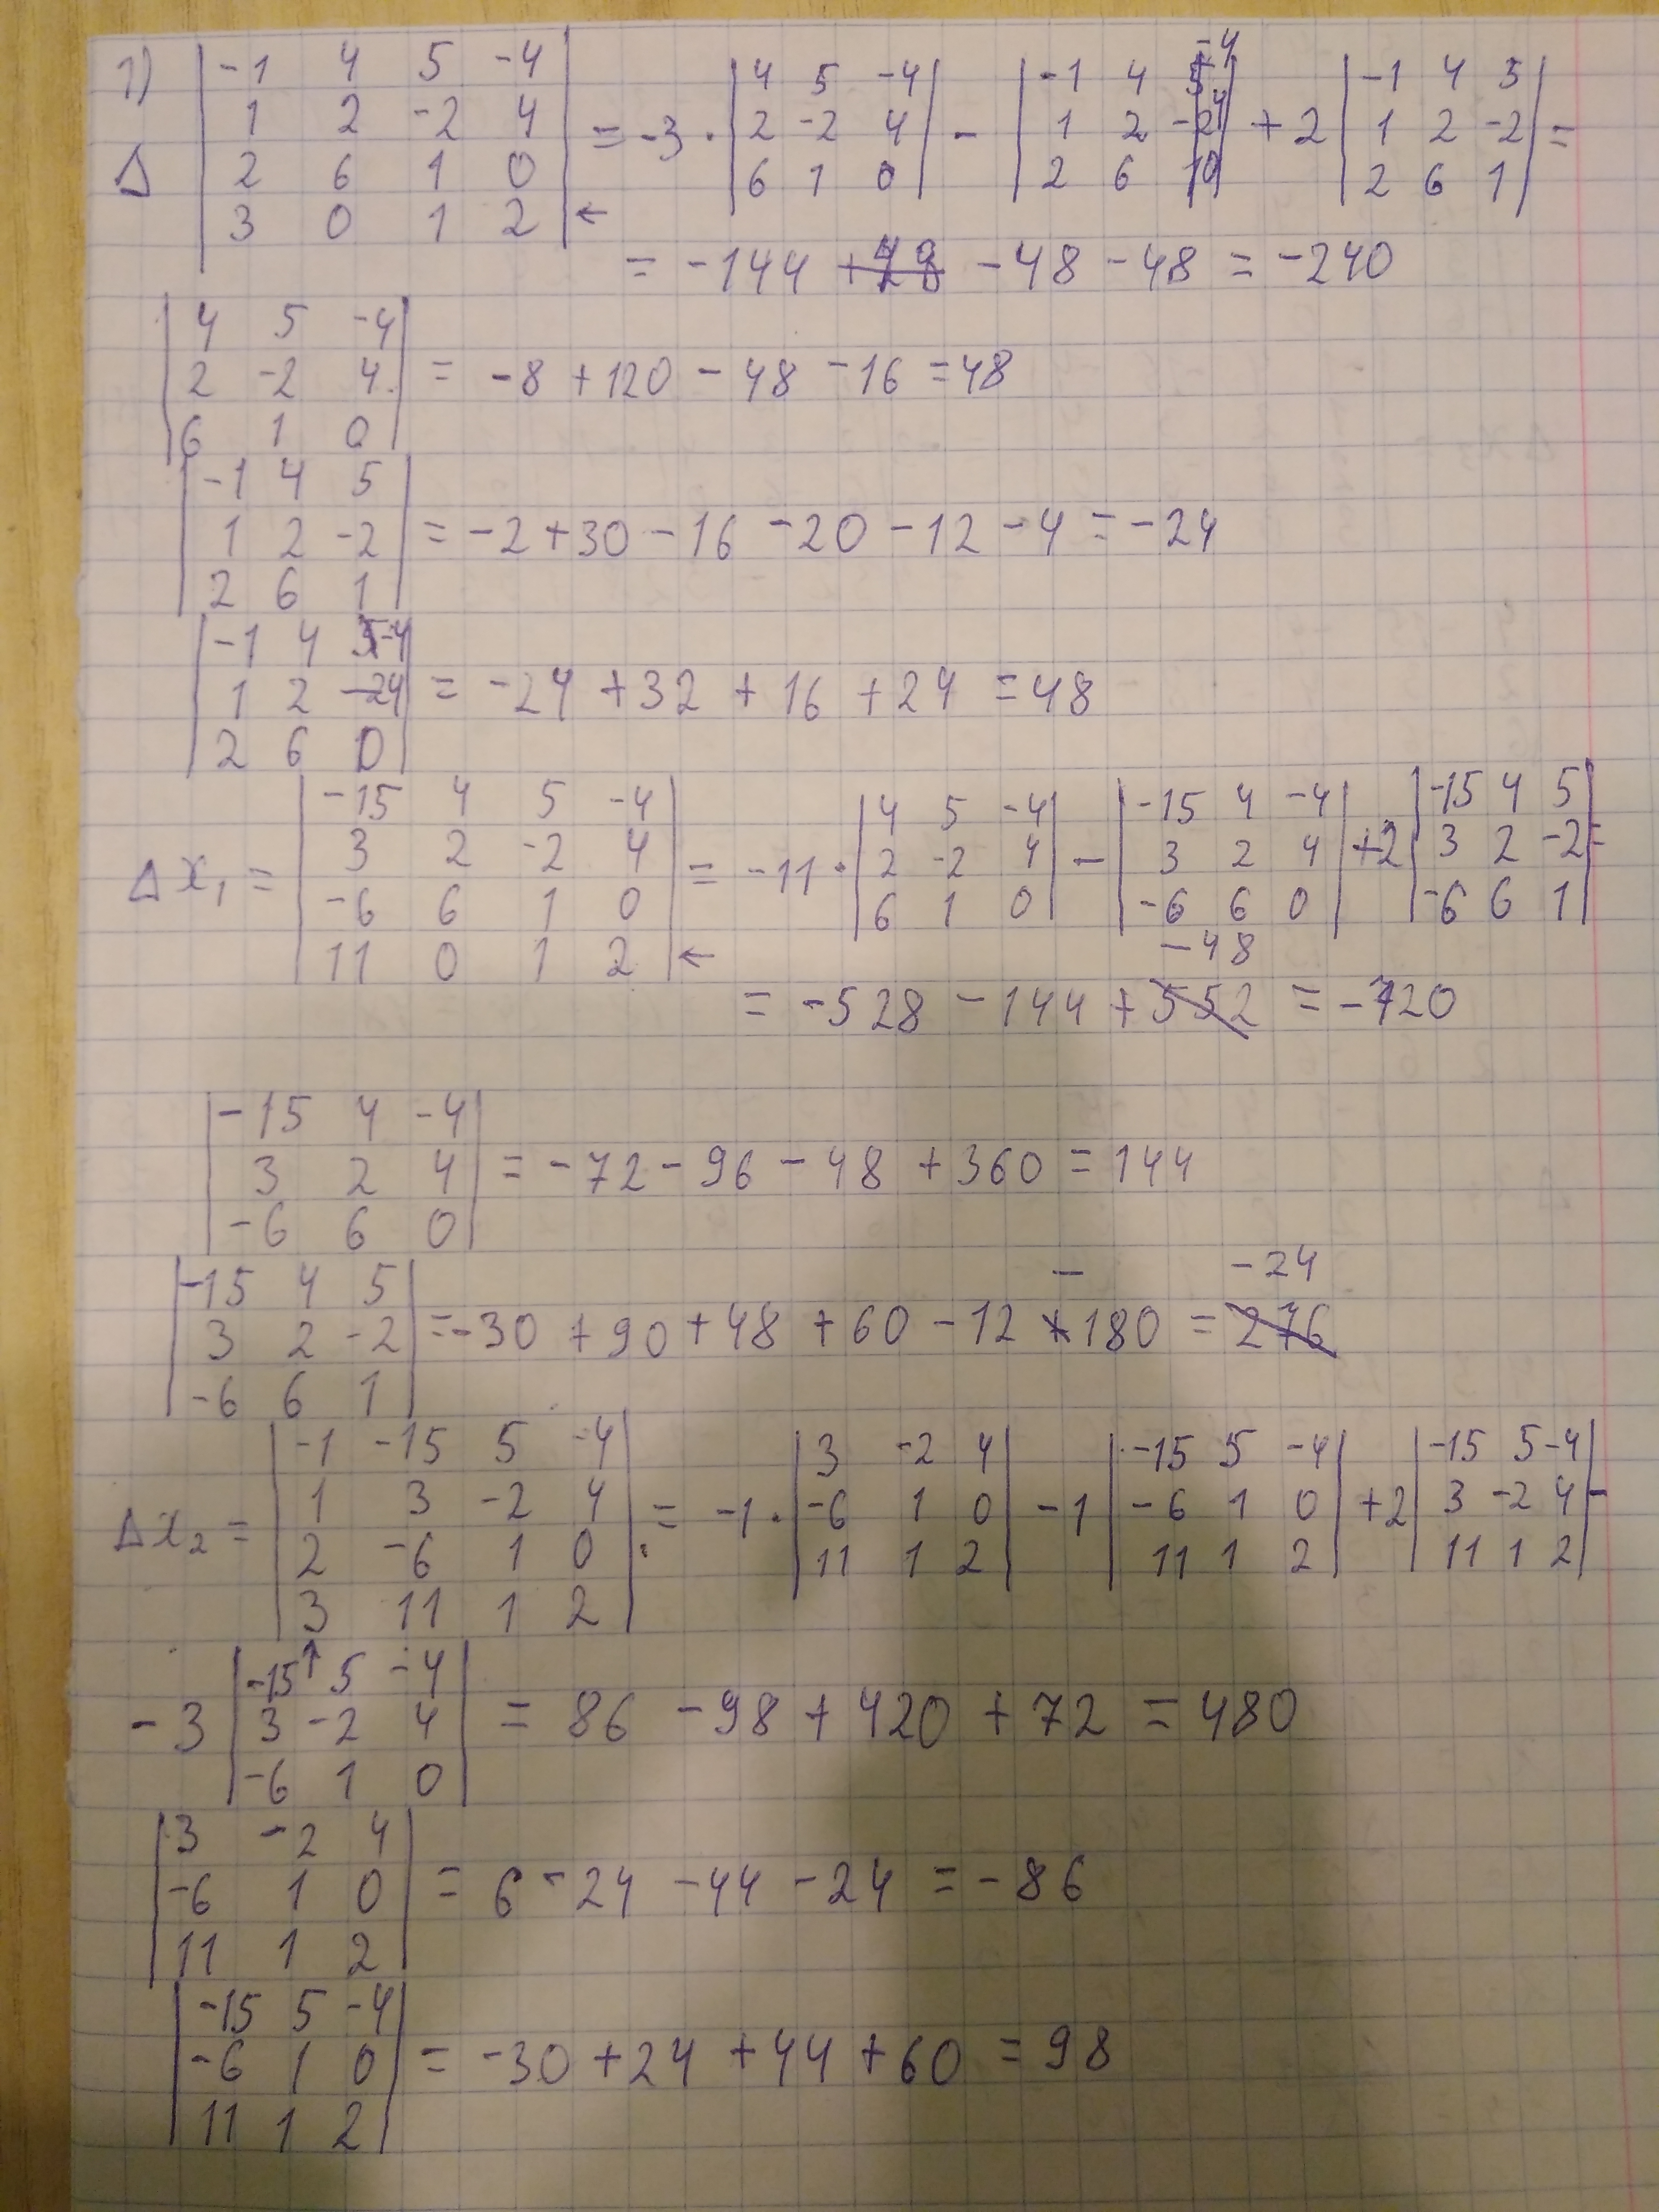 1)
Δ
| -1 4 5 -4 |
| 1 2 -2 4 |
| 2 6 1 0 |
| 3 0 1 2 | ←
= -3 ·
| 4 5 -4 |
| 2 -2 4 |
| 6 1 0 |
-
| -1 4 -4 |
| 1 2 4 |
| 2 6 0 |
+ 2
| -1 4 5 |
| 1 2 -2 |
| 2 6 1 |
=
= -144 - 48 - 48 = -240
| 4 5 -4 |
| 2 -2 4 |
| 6 1 0 |
= -8 + 120 - 48 - 16 = 48
| -1 4 5 |
| 1 2 -2 |
| 2 6 1 |
= -2 + 30 - 16 - 20 - 12 - 4 = -24
| -1 4 -4 |
| 1 2 4 |
| 2 6 0 |
= -24 + 32 + 16 + 24 = 48
Δx₁ =
| -15 4 5 -4 |
| 3 2 -2 4 |
| -6 6 1 0 |
| 11 0 1 2 | ←
= -11 ·
| 4 5 -4 |
| 2 -2 4 |
| 6 1 0 |
-
| -15 4 -4 |
| 3 2 4 |
| -6 6 0 |
+2
| -15 4 5 |
| 3 2 -2 |
| -6 6 1 |
=
-48
= -528 - 144 + 552 = -720
| -15 4 -4 |
| 3 2 4 |
| -6 6 0 |
= -72 - 96 - 48 + 360 = 144
| -15 4 5 |
| 3 2 -2 |
| -6 6 1 |
- -24
= -30 + 90 + 48 + 60 - 12 + 180 = 276
Δx₂ =
| -1 -15 5 -4 |
| 1 3 -2 4 |
| 2 -6 1 0 |
| 3 11 1 2 |
↑
= -1 ·
| 3 -2 4 |
| -6 1 0 |
| 11 1 2 |
-1
| -15 5 -4 |
| -6 1 0 |
| 11 1 2 |
+2
| -15 5 -4 |
| 3 -2 4 |
| 11 1 2 |
-
- 3
| -15 5 -4 |
| 3 -2 4 |
| -6 1 0 |
= 86 - 98 + 420 + 72 = 480
| 3 -2 4 |
| -6 1 0 |
| 11 1 2 |
= 6 - 24 - 44 - 24 = -86
| -15 5 -4 |
| -6 1 0 |
| 11 1 2 |
= -30 + 24 + 44 + 60 = 98